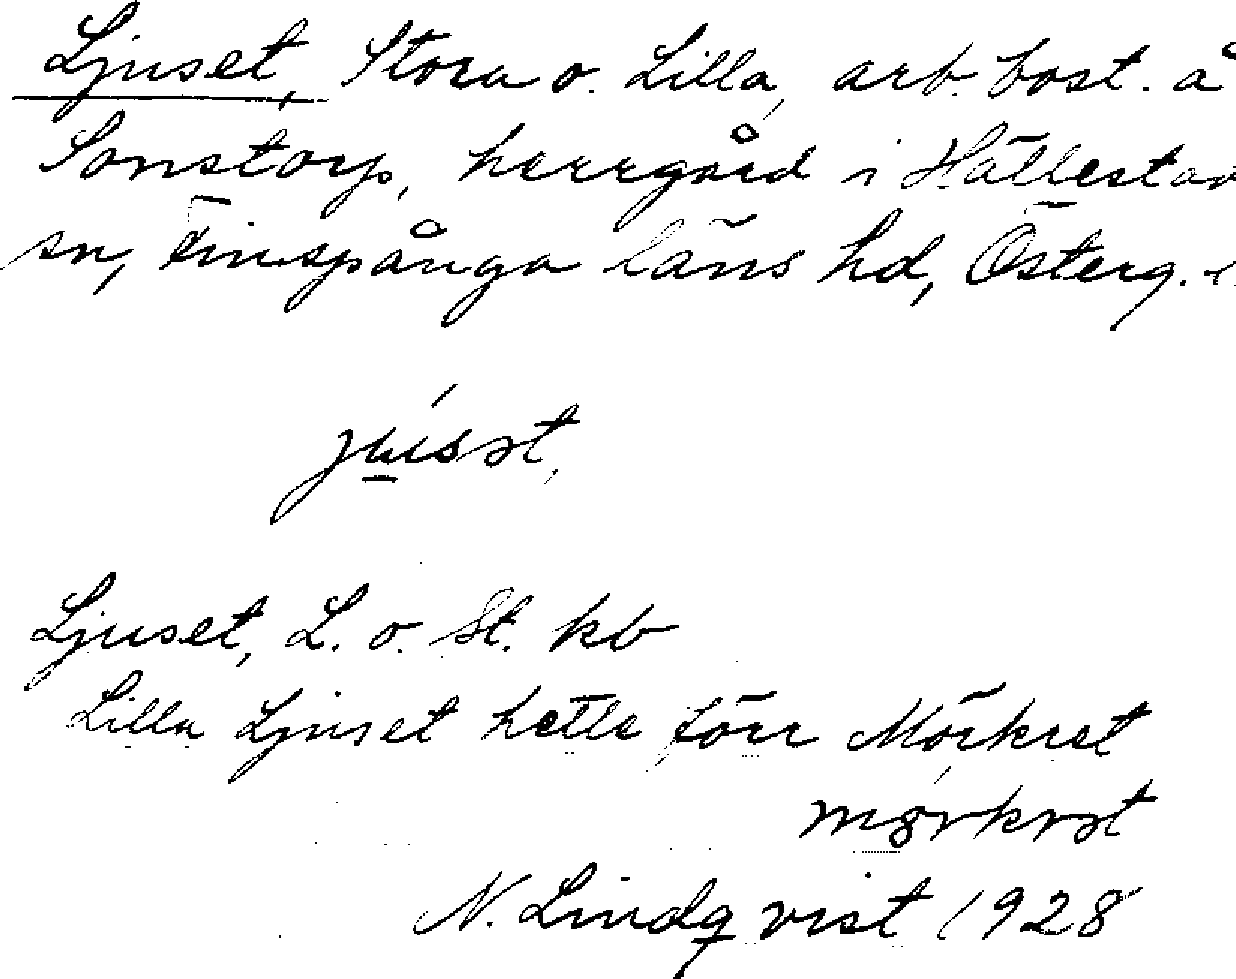 Ljuset, Stora o. Lilla, arb. bost. å
Sonstorp, herrgård i Hällestad
sn, Finspånga läns hd, Österg.
Ljuset, L. o. St. kb
Lilla Ljuset hette förr Mörkret
N. Lindqvist 1928